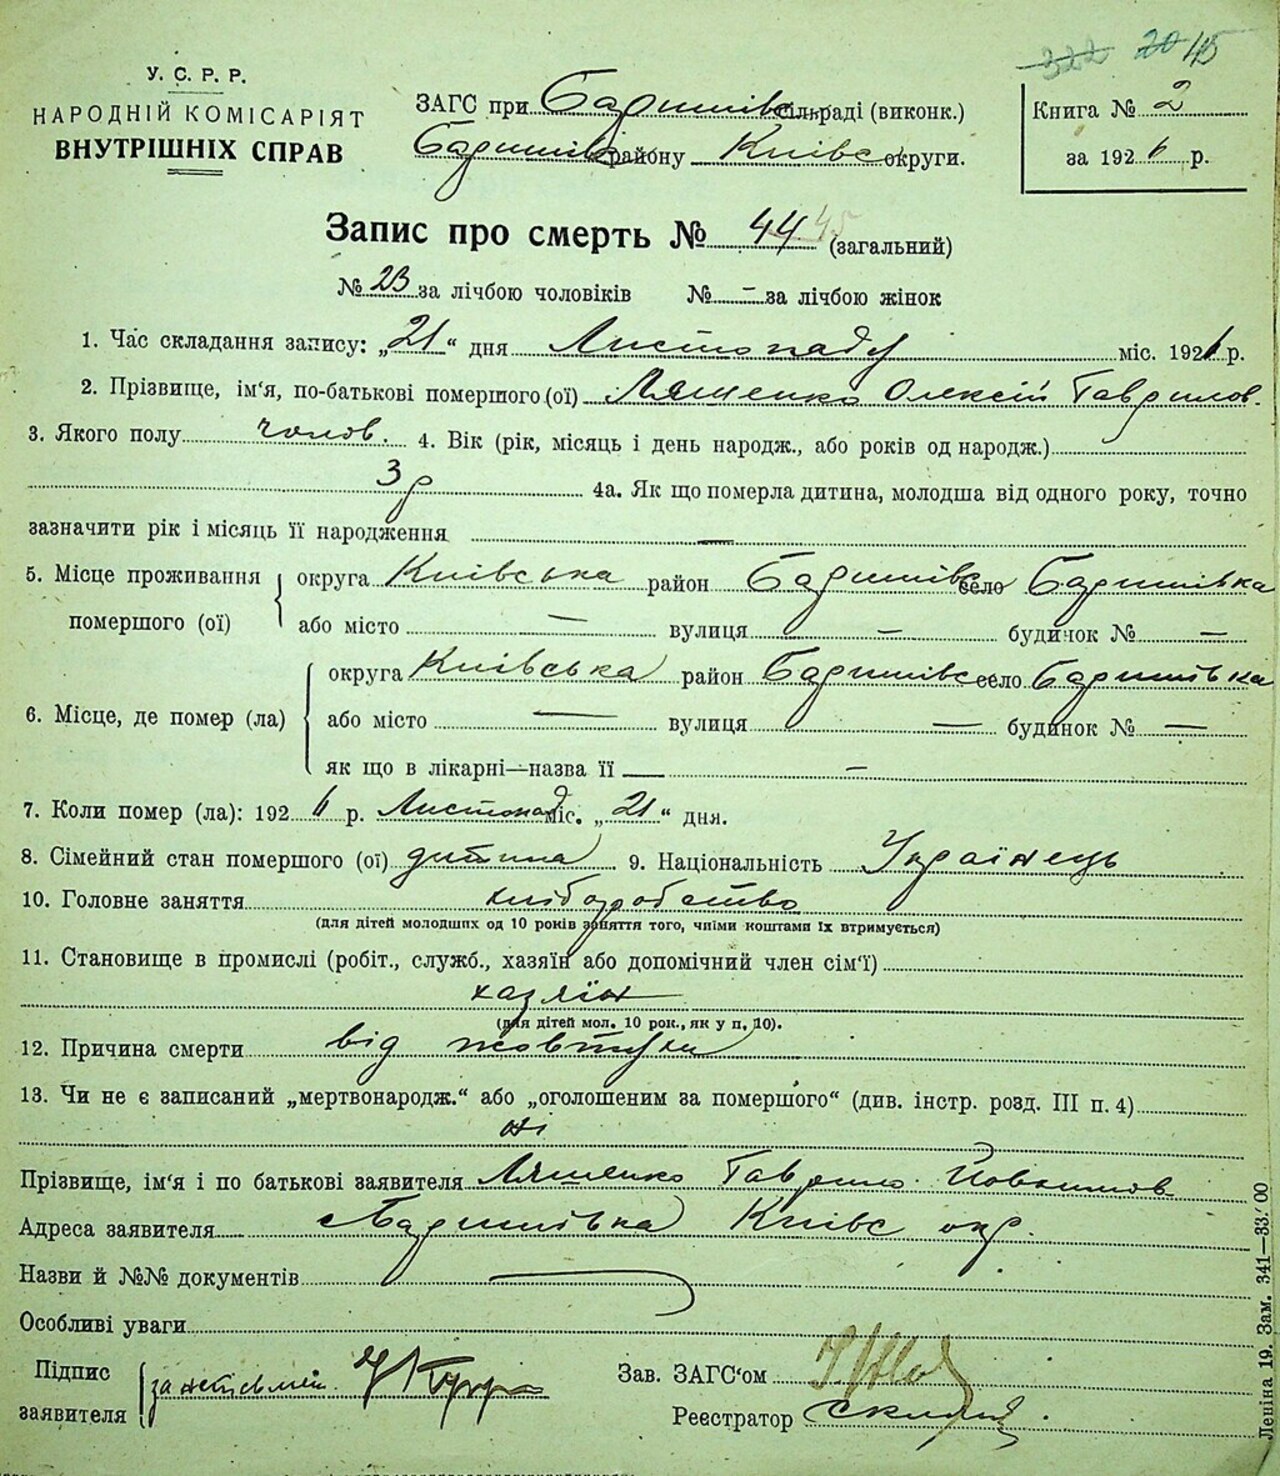 322 20 45
У. С. Р. Р.
НАРОДНІЙ КОМІСАРІЯТ
ВНУТРІШНІХ СПРАВ
ЗАГС при Баришівс сільраді (виконк.)
Баришівс району Київс округи.
Книга № 2
за 1926 р.
Запис про смерть № 44 45 (загальний)
№ 23 за лічбою чоловіків № - за лічбою жінок
1. Час складання запису: „21“ дня Листопаду міс. 1926 р.
2. Прізвище, ім'я, по-батькові помершого (ої) Ляшенко Олексій Гаврилов.
3. Якого полу чолов. 4. Вік (рік, місяць і день народж., або років од народж.)
3 р 4а. Як що померла дитина, молодша від одного року, точно
зазначити рік і місяць її народження —
5. Місце проживання помершого (ої) округа Київська район Баришівс село Баришівка
або місто — вулиця — будинок № —
6. Місце, де помер (ла) округа Київська район Баришівс село Баришівка
або місто — вулиця — будинок № —
як що в лікарні—назва її —
7. Коли помер (ла): 1926 р. Листопад міс. „21“ дня.
8. Сімейний стан помершого (ої) дитина 9. Національність Українець
10. Головне заняття хліборобство
(для дітей молодших од 10 років заняття того, чиїми коштами їх втримується)
11. Становище в промислі (робіт., служб., хазяїн або допомічний член сім'ї)
хазяїн
(для дітей мол. 10 рок., як у п. 10).
12. Причина смерти від жовтухи
13. Чи не є записаний „мертвонародж.“ або „оголошеним за помершого“ (див. інстр. розд. III п. 4)
ні
Прізвище, ім'я і по батькові заявителя Ляшенко Гаврило Йовхимов
Адреса заявителя Баришівка Київс окр.
Назви й №№ документів —
Особливі уваги
Підпис заявителя за неписьмен.
Зав. ЗАГС'ом
Реєстратор
Леніна 19. Зам. 341—33.'00